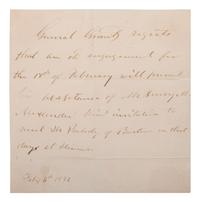 General Grant's regrets
that an engagement for
the 18th of February will prevent
his acceptance of Mr Henry M.
Alexander kind invitation to
meet Mr Peabody of Boston on that
day, at dinner.
Feby 6th